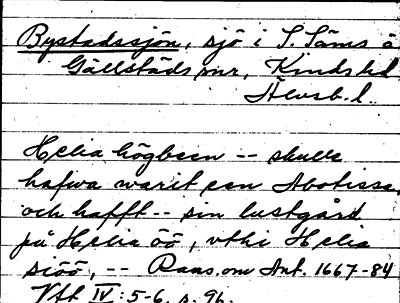 Bystadssjön, sjö i S. Säms o
Gällstads snr, Kinds hd
Älvsb. l.
Helia högbeen -- skulle
hafwa warit een Abotissa,
och hafft -- sin lustgård
på Helia öö, vthi Helia
siöö, -- Rans. om Ant. 1667-84
Vft IV:5-6. s. 96.